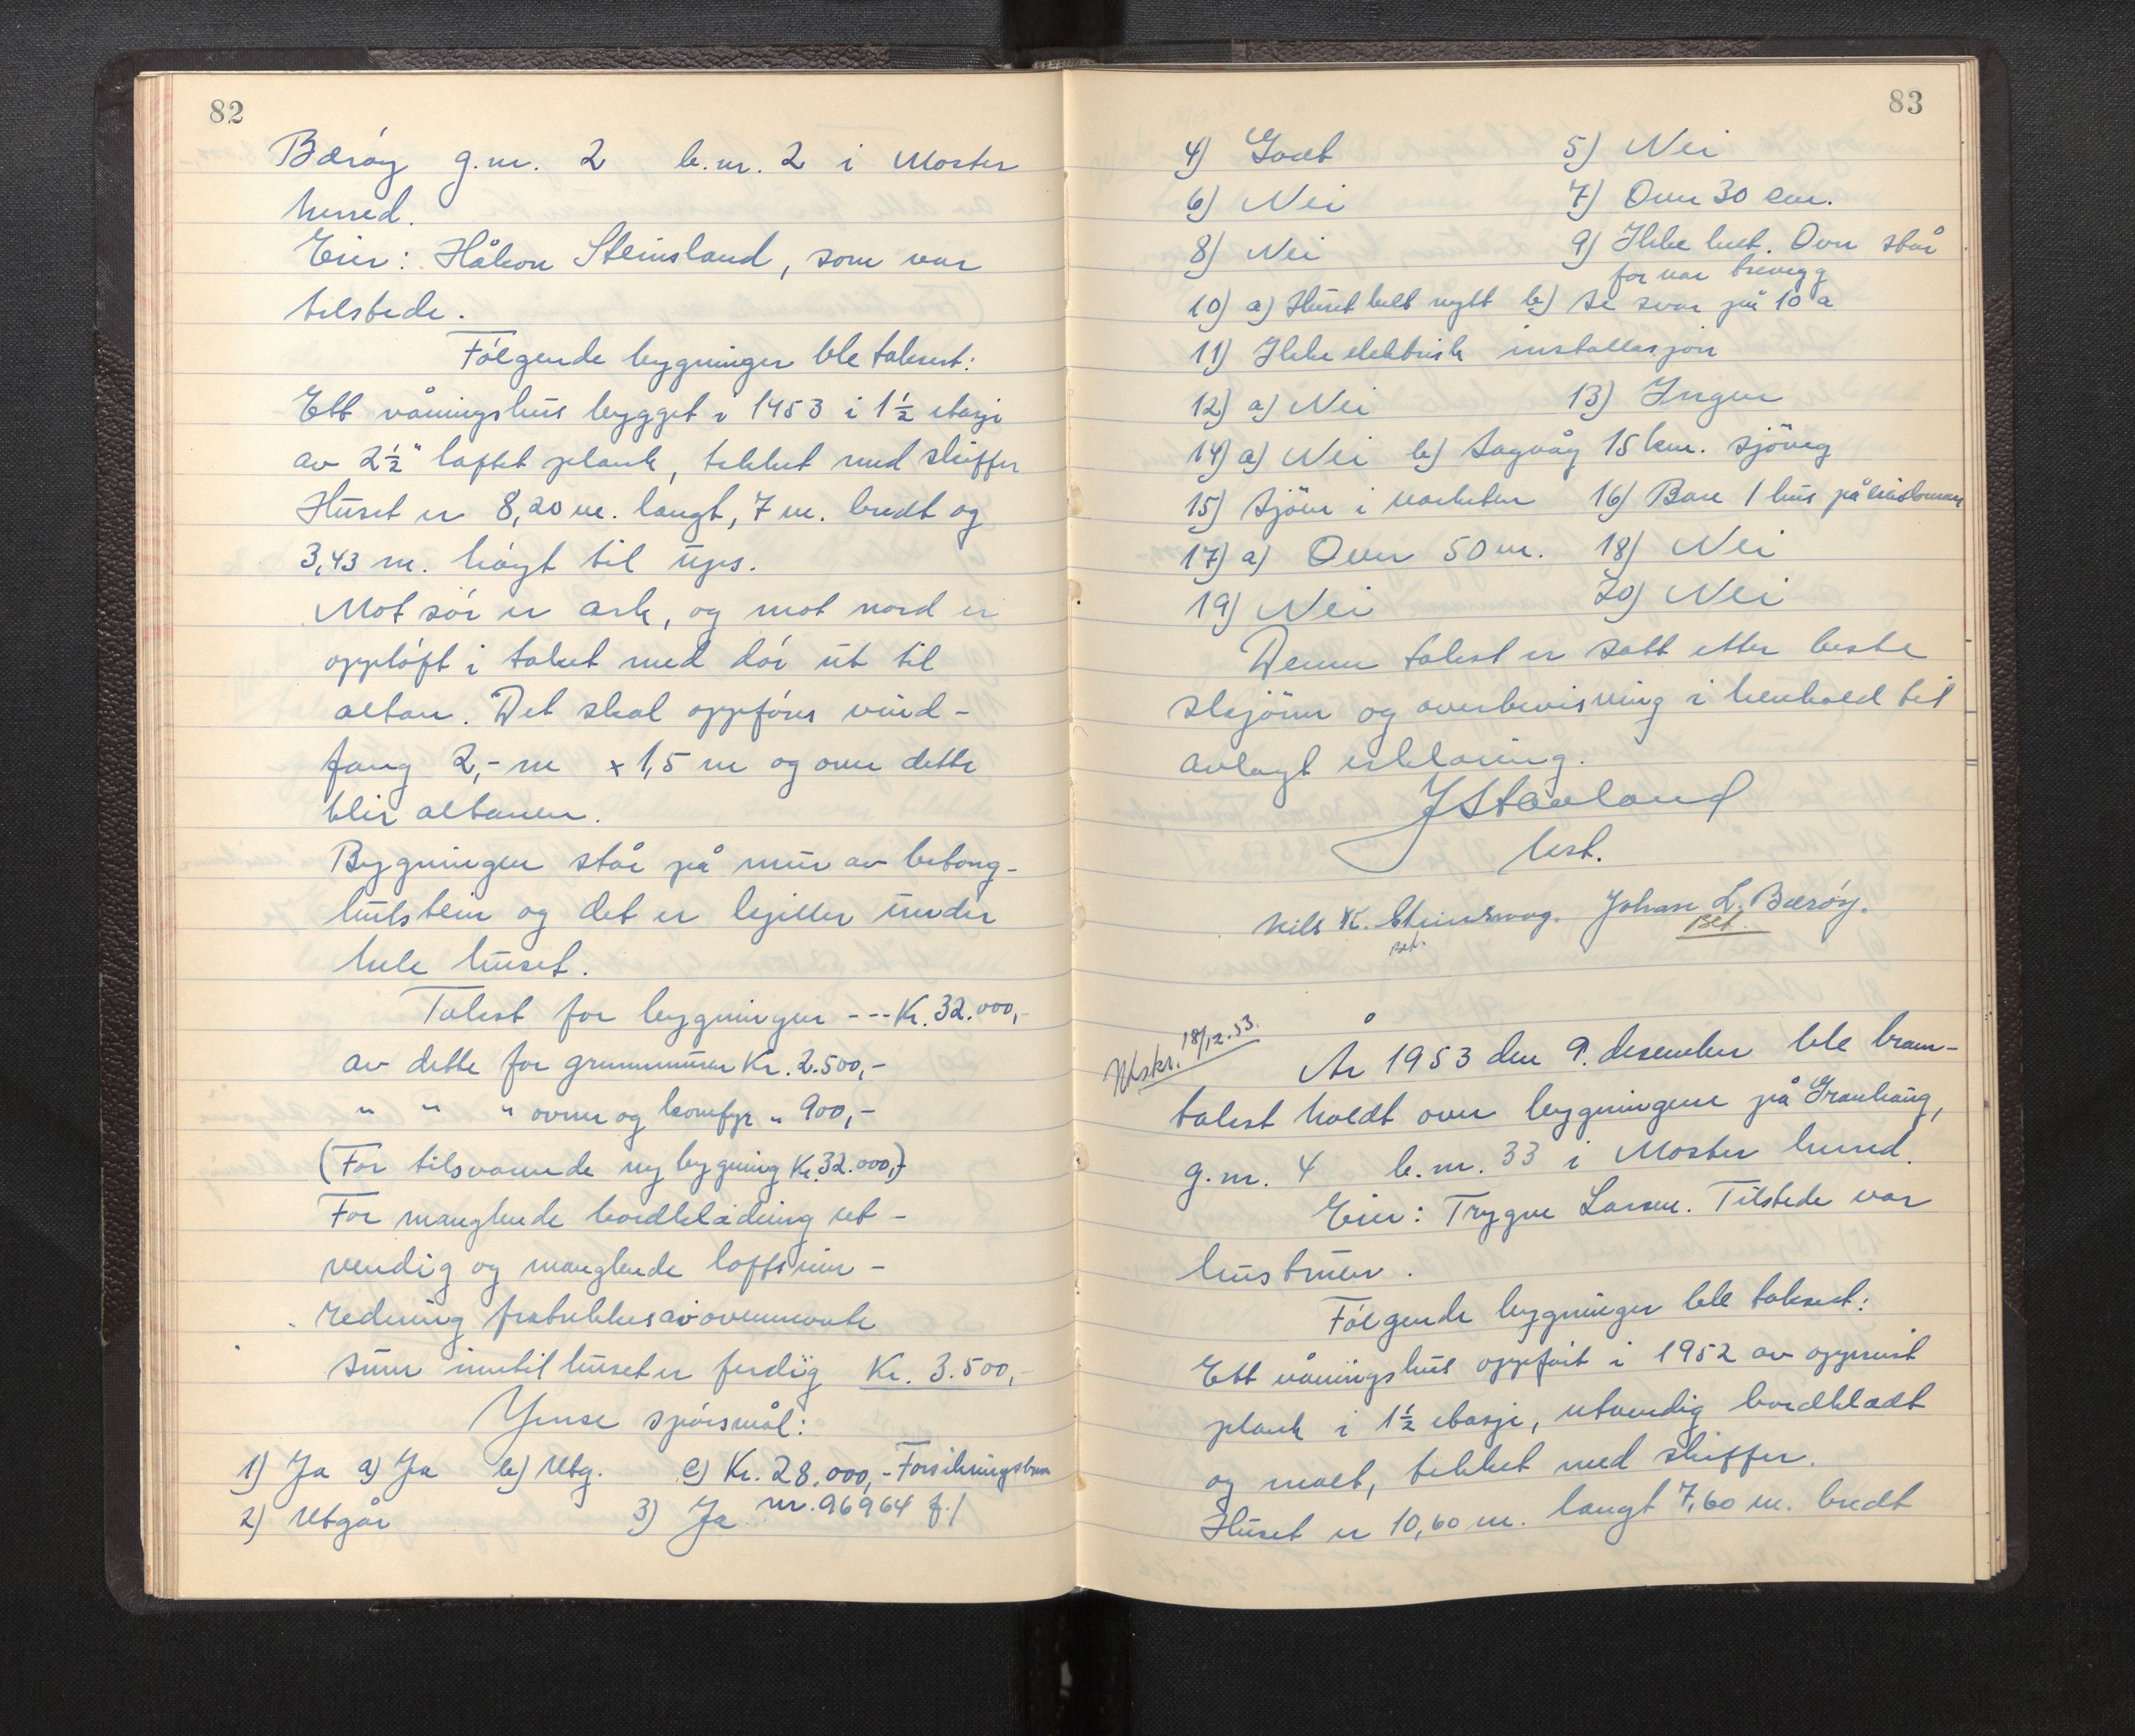 82
Bærøy g.nr. 2 b.nr. 2 i Moster
herred.
Eier: Håkon Steinsland, som var
tilstede.
Følgende bygninger ble taksert:
Ett våningshus bygget i 1953 i 1½ etasje
av 2½" laftet plank, tekket med skiffer
Huset er 8,20 m. langt, 7 m. bredt og
3,43 m. høgt til ups.
Mot sør er ark, og mot nord er
oppløft i taket med dør ut til
altan. Det skal oppføres vind-
fang 2,- m x 1,5 m og over dette
blir altanen.
Bygningen står på mur av betong-
hulstein og det er kjeller under
hele huset.
Takst for bygningen --- Kr. 32.000,-
av dette for grunnmuren Kr. 2.500,-
" " " ovner og komfyr " 900,-
(For tilsvarende ny bygning Kr. 32.000,-)
For manglende bordkledning ut-
vendig og manglende loftsinn-
redning fratrekkes av ovennevnte
sum inntil huset er ferdig Kr. 3.500,-
Ymse spørsmål:
1) Ja a) Ja b) Utg. c) Kr. 28.000,- Forsikringsbrev
2) Utgår 3) Ja nr. 96964 f./
83
4) Godt 5) Nei
6) Nei 7) Over 30 cm.
8) Nei 9) Ikke helt. Ovn står
for nær trevegg
10) a) Huset helt nytt b) Se svar på 10 a
11) Ikke elektrisk installasjon
12) a) Nei 13) Ingen
14) a) Nei b) Sagvåg 15 km. sjöveg
15) Sjöen i nærheten 16) Bare 1 hus på eiendommen
17) a) Over 50 m. 18) Nei
19) Nei 20) Nei
Denne takst er satt etter beste
skjönn og overbevisning i henhold til
avlagt erklæring.
J Stavland
lest.
Nils K. Steinsvåg. Johan L. Bærøy.
Bet. Bet.
Utskr. 18/12.53.
År 1953 den 9. desember ble brann-
takst holdt over bygningene på Granhaug,
g.nr. 4 b.nr. 33 i Moster herred.
Eier: Trygve Larsen. Tilstede var
hustruen.
Følgende bygninger ble taksert:
Ett våningshus oppført i 1952 av oppreist
plank i 1½ etasje, utvendig bordkledt
og malt, tekket med skiffer.
Huset er 10,60 m. langt 7,60 m. bredt